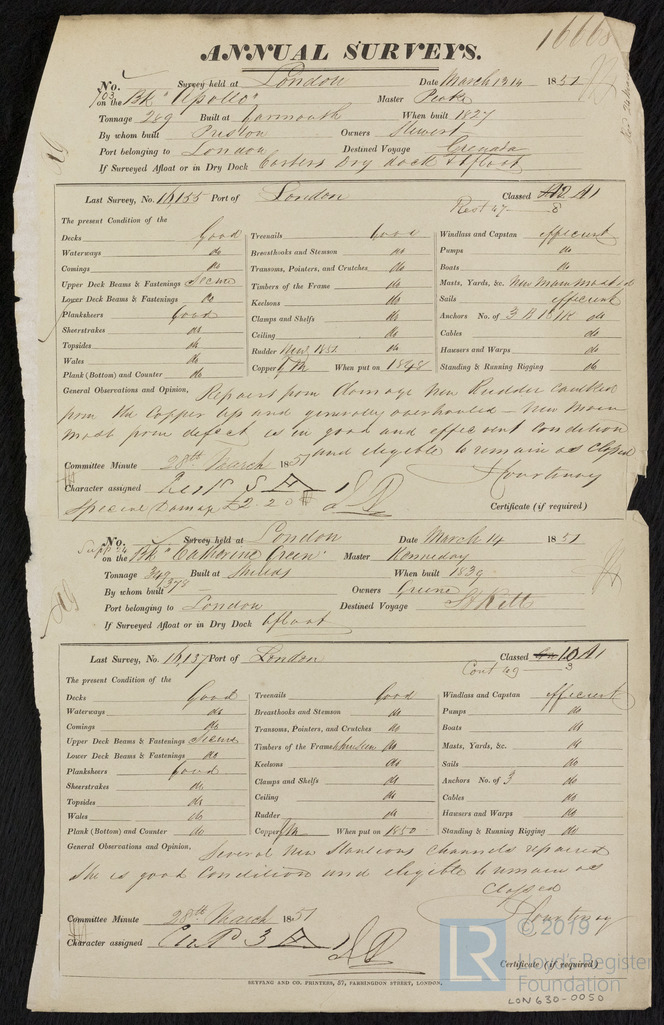 16668
ANNUAL SURVEYS.
No. Survey held at London Date March 13 14 1851
703 on the Bk "Apollo" Master Peake
Tonnage 269 Built at Yarmouth When built 1827
By whom built Preston Owners Stewart
Port belonging to London Destined Voyage Grenada
If Surveyed Afloat or in Dry Dock Carters Dry dock & afloat
Last Survey, No. 16,155 Port of London Classed A1
Rest 47 - 8
The present Condition of the
Decks Good
Waterways do
Comings do
Upper Deck Beams & Fastenings Secure
Lower Deck Beams & Fastenings do
Planksheers Good
Sheerstrakes do
Topsides do
Wales do
Plank (Bottom) and Counter do
Treenails Good
Breasthooks and Stemson do
Transoms, Pointers, and Crutches do
Timbers of the Frame do
Keelsons do
Clamps and Shelfs do
Ceiling do
Rudder New, 1851 do
Copper When put on 1848
Windlass and Capstan efficient
Pumps do
Boats do
Masts, Yards, &c. New Main mast
Sails efficient
Anchors No. of 3 B 1 S 1 K do
Cables do
Hawsers and Warps do
Standing & Running Rigging do
General Observations and Opinion, Repairs from damage New Rudder caulked
from the Copper up and generally overhauled - New Main
mast from defect is in good and efficient condition
and eligible to remain as Classed
Committee Minute 28th March 1851 Courtenay
Character assigned Rest 8 A 1
Special Damage £2.2.0 Certificate (if required)
No. Survey held at London Date March 14 1851
on the Bk "Catherine Green" Master Kenneday
Tonnage 349 / 378 Built at Shields When built 1839
By whom built - Owners Greene
Port belonging to London Destined Voyage St Kitts
If Surveyed Afloat or in Dry Dock afloat
Last Survey, No. 16,137 Port of London Classed 10 A1
Cont 49 - 3
The present Condition of the
Decks Good
Waterways do
Comings do
Upper Deck Beams & Fastenings Secure
Lower Deck Beams & Fastenings do
Planksheers Good
Sheerstrakes do
Topsides do
Wales do
Plank (Bottom) and Counter do
Treenails Good
Breasthooks and Stemson do
Transoms, Pointers, and Crutches do
Timbers of the Frame when seen do
Keelsons do
Clamps and Shelfs do
Ceiling do
Rudder do
Copper When put on 1850
Windlass and Capstan efficient
Pumps do
Boats do
Masts, Yards, &c. do
Sails do
Anchors No. of 3 do
Cables do
Hawsers and Warps do
Standing & Running Rigging do
General Observations and Opinion, Several New Stantions Channels repaired
She is good Condition and eligible to remain as
Classed
Committee Minute 28th March 1851 Courtenay
Character assigned Cont 3 A 1
Certificate (if required)
SEYFANG AND CO. PRINTERS, 57, FARRINGDON STREET, LONDON.
LR © 2019
Lloyd's Register
Foundation
LON630-0050